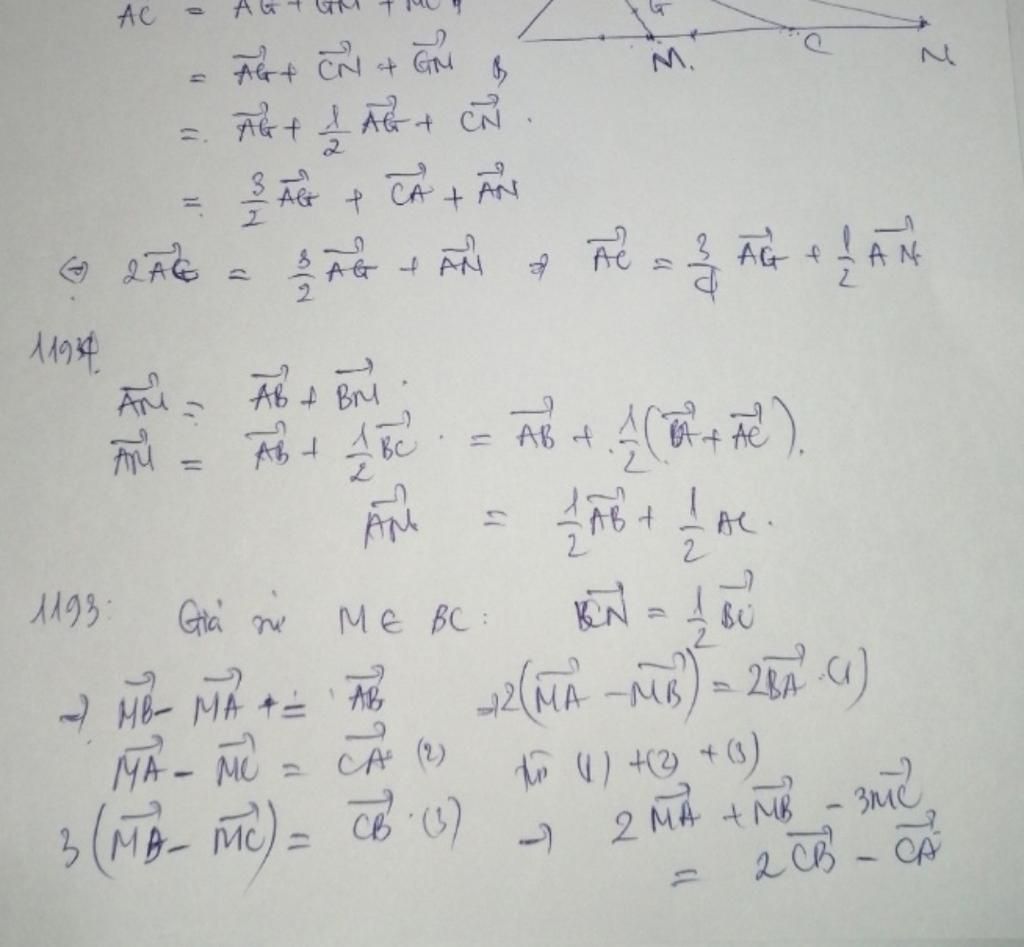 AC = AG + GM + MC
= AG + CN + GM
= AG + 1/2 AG + CN
= 3/2 AG + CA + AN
⇔ 2AC = 3/2 AG + AN ⇒ AC = 3/4 AG + 1/2 AN
G
M.
C
N
B
1194.
AM = AB + BM.
AM = AB + 1/2 BC = AB + 1/2 (BA + AC).
AM = 1/2 AB + 1/2 AC.
1193: Giả sử M ∈ BC: CN = 1/2 BC
→ MB - MA = AB → 2(MA - MB) = 2BA (1)
MA - MC = CA (2) từ (1) + (2) + (3)
3(MB - MC) = CB (3) → 2MA + MB - 3MC
= 2CB - CA